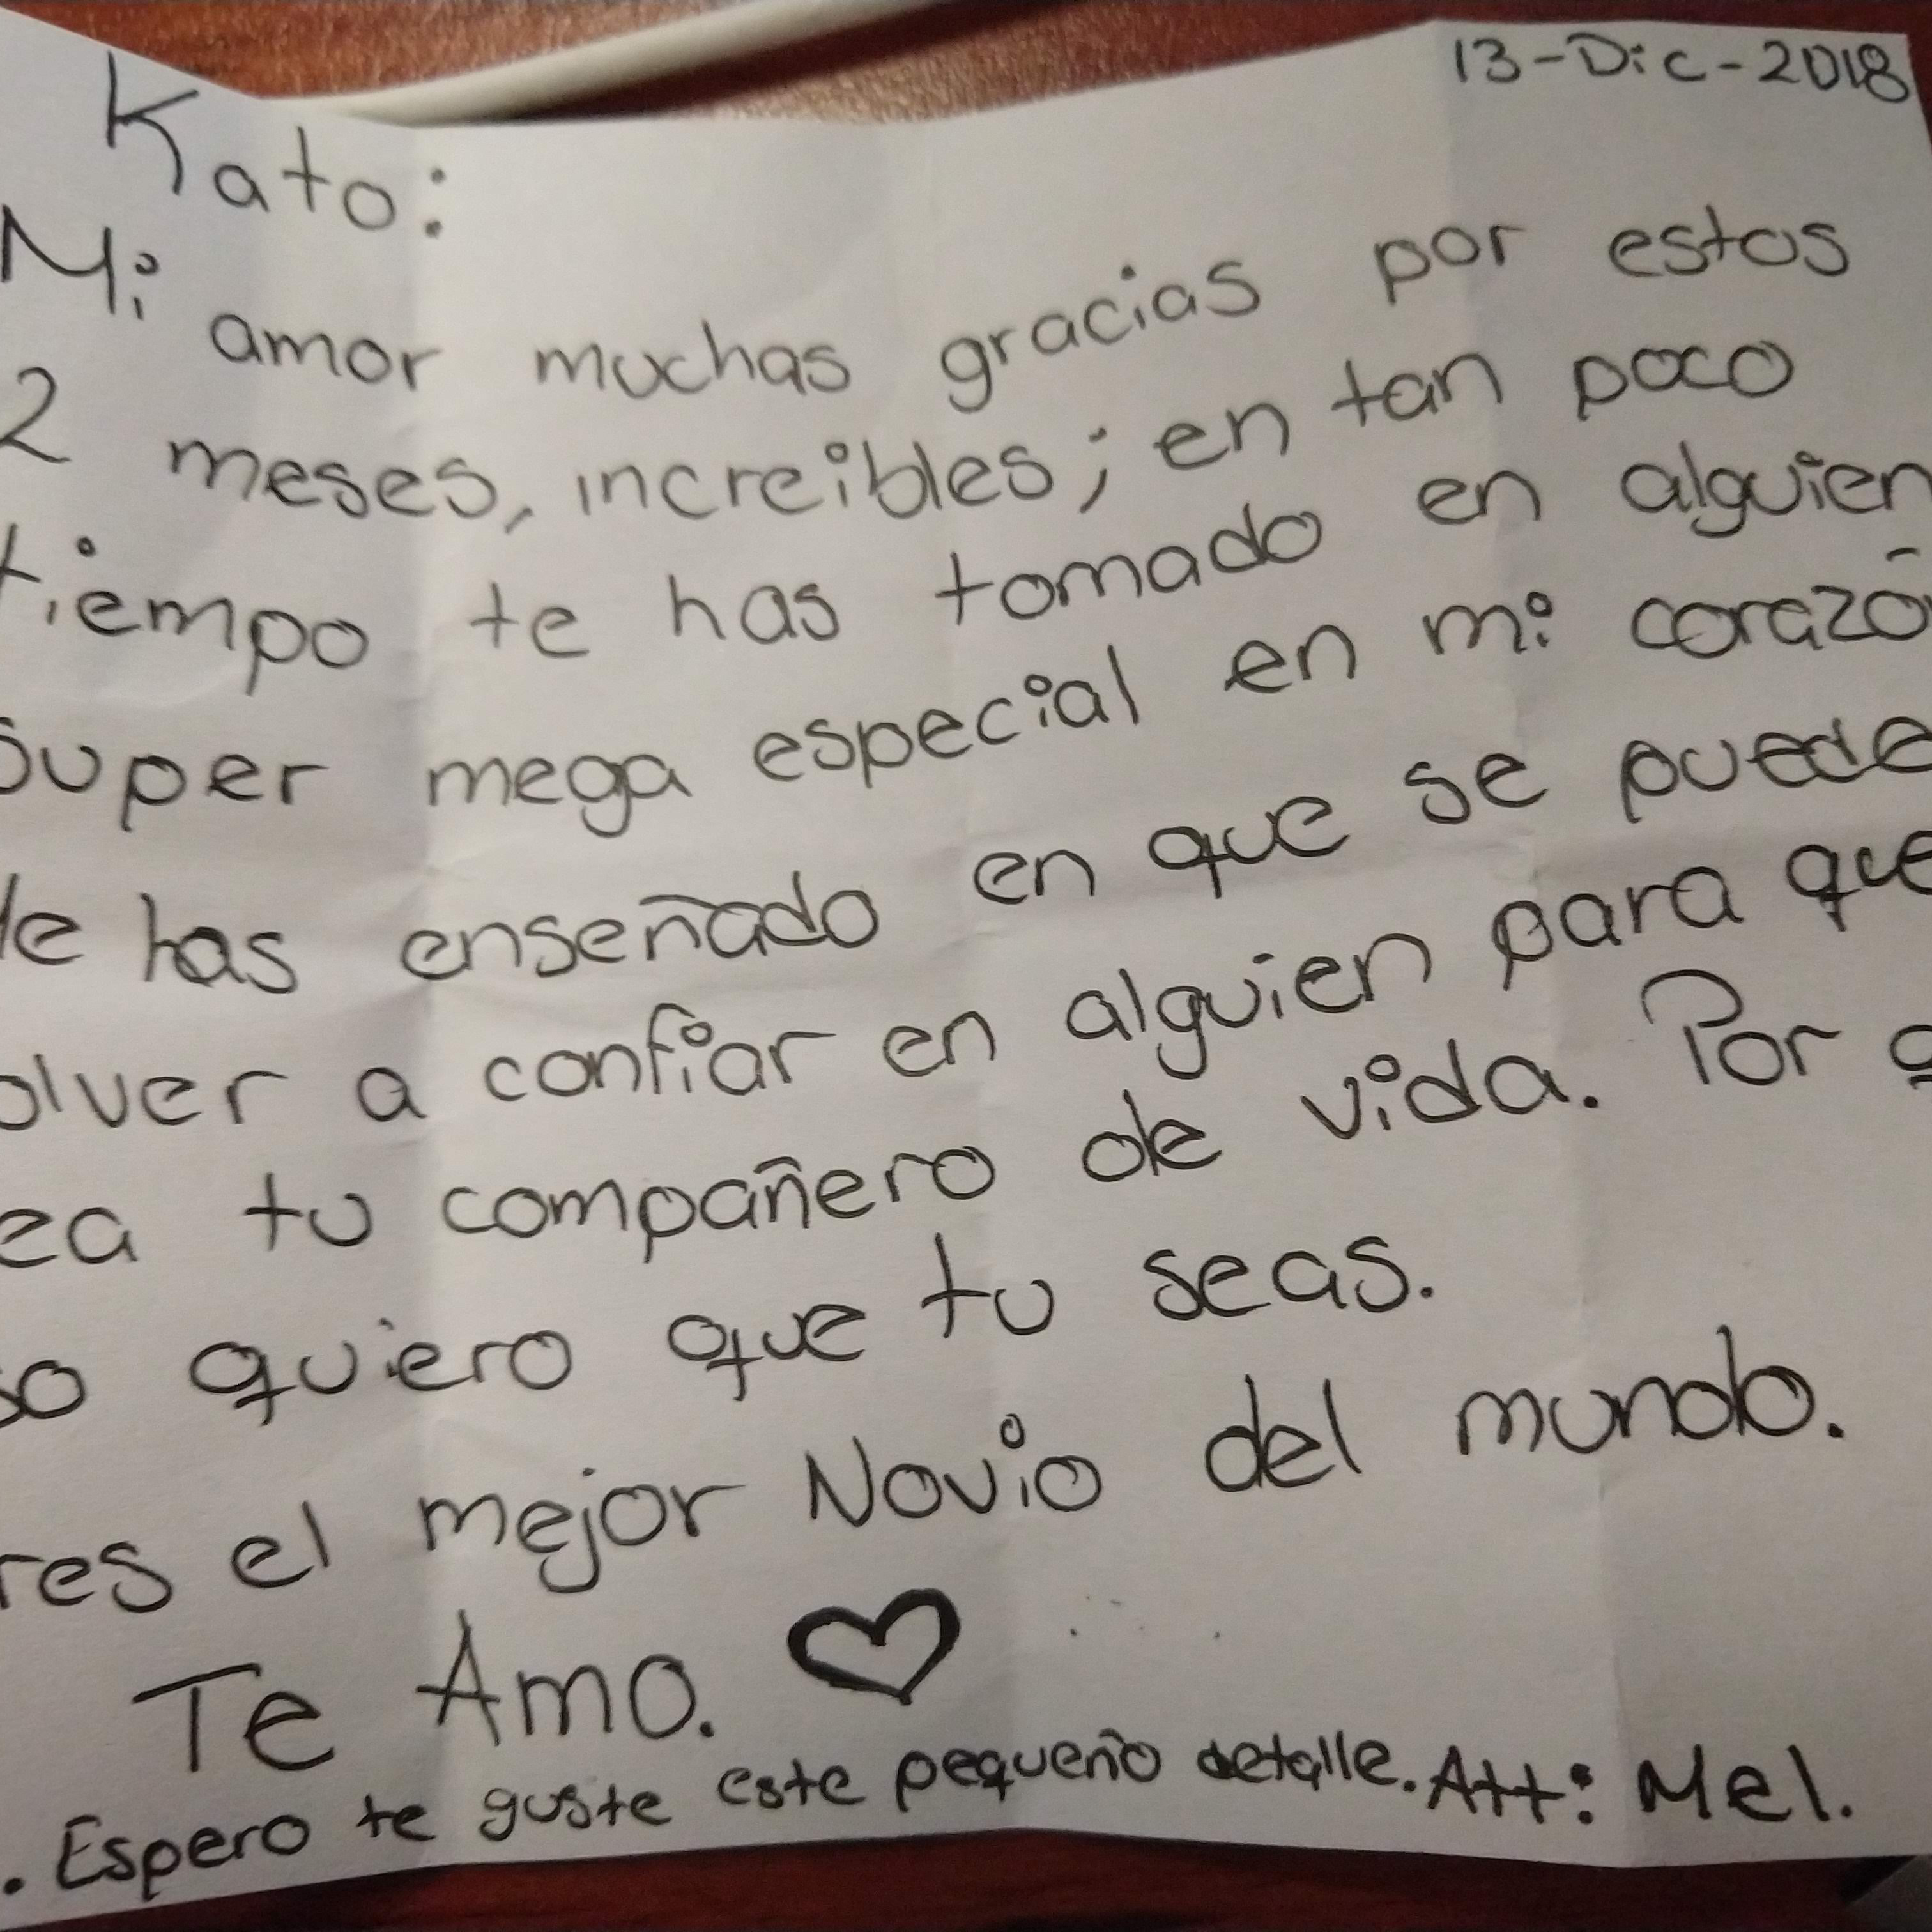 13-Dic-2018
Kato:
Mi amor muchas gracias por estos
2 meses, increibles; en tan poco
tiempo te has tomado en alguien
super mega especial en mi corazó
le has enseñado en que se puede
olver a confiar en alguien para que
ea tu compañero de vida. Por e
so quiero que tu seas.
res el mejor Novio del mundo.
Te Amo. ♡
. Espero te guste este pequeño detalle. Att: Mel.